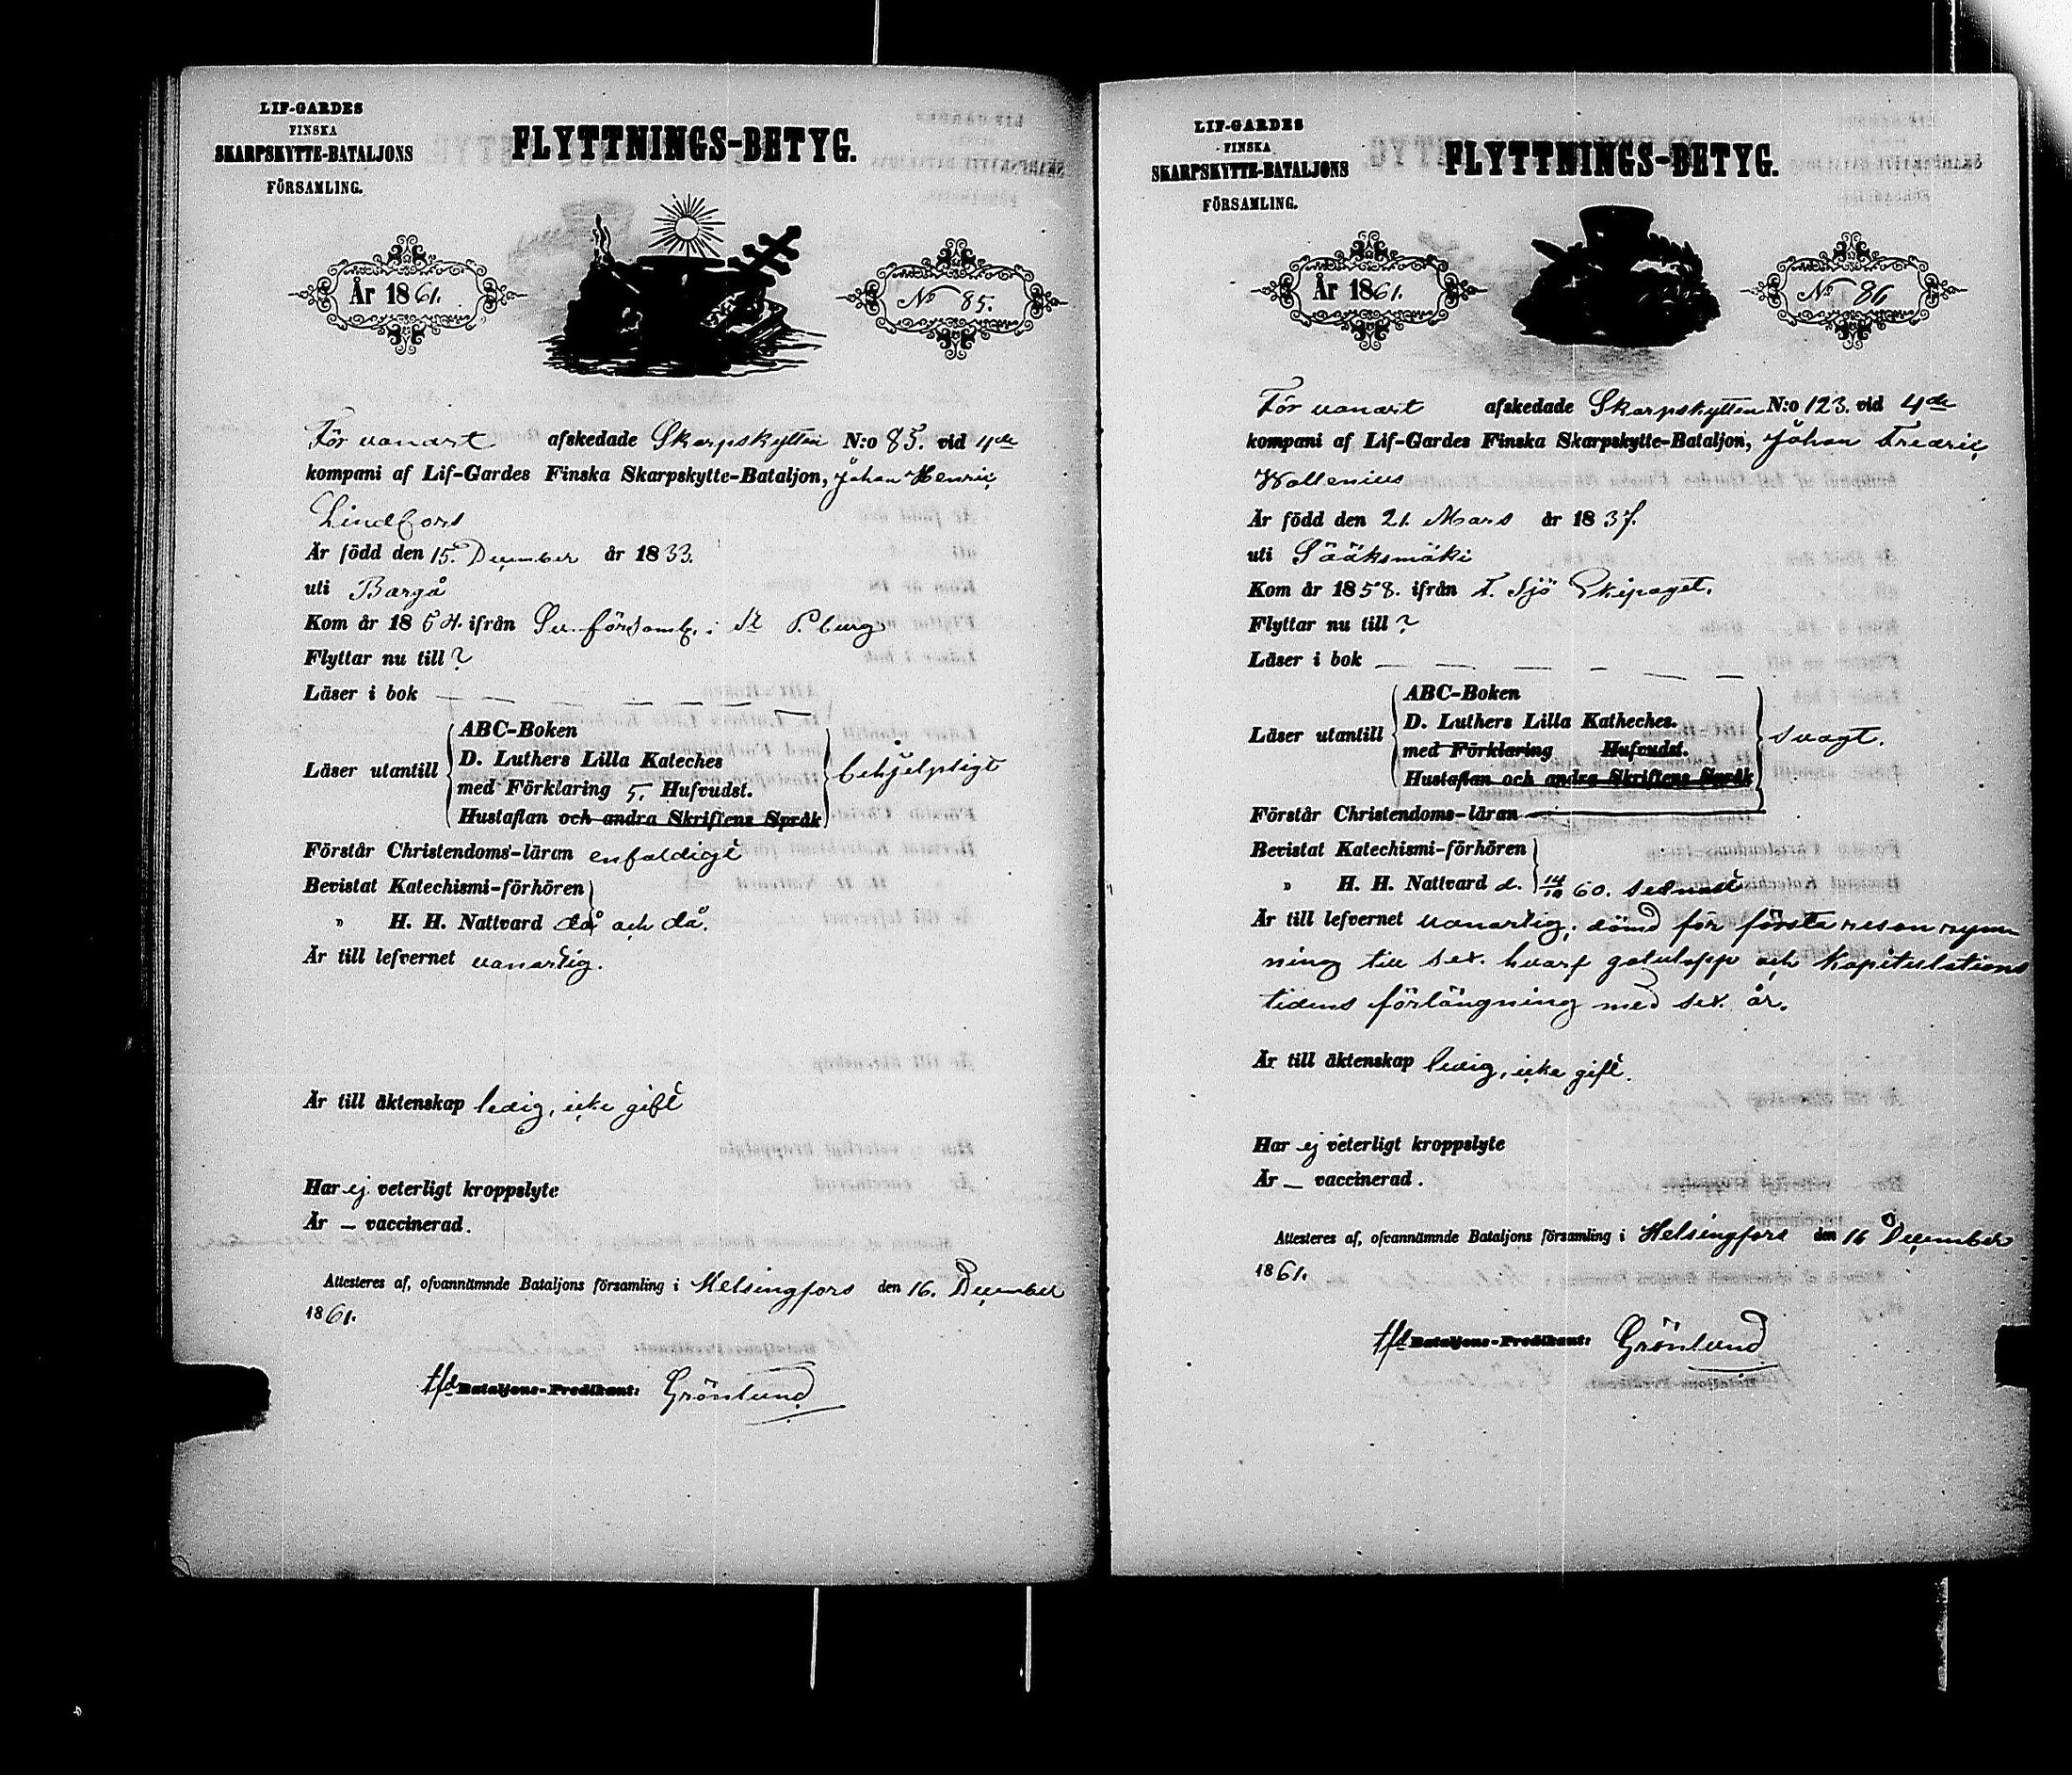 LIF-GARDES
FINSKA
SKARPSKYTTE-BATALJONS
FÖRSAMLING.
FLYTTNINGS-BETYG.
År 1861.
No 85.
För vanart afskedade Skarpskytten N:o 85. vid 4de
kompani af Lif-Gardes Finska Skarpskytte-Bataljon, Johan Henric
Lindfors
Är född den 15. December år 1833.
uti Borgå
Kom år 1854. ifrån Sv. församl. i St P.burg
Flyttar nu till ?
Läser i bok
Läser utantill
ABC-Boken
D. Luthers Lilla Kateches
med Förklaring 5, Hufvudst.
Hustaflan och andra Skriftens Språk
behjelpligt
Förstår Christendoms-läran enfaldigt
Bevistat Katechismi-förhören
" H. H. Nattvard då och då.
Är till lefvernet vanartig.
Är till äktenskap ledig, icke gift
Har ej veterligt kroppslyte
Är — vaccinerad.
Attesteres af, ofvannämnde Bataljons församling i Helsingfors den 16. December
1861.
tfd Bataljons-Predikant: Grönlund
LIF-GARDES
FINSKA
SKARPSKYTTE-BATALJONS
FÖRSAMLING.
FLYTTNINGS-BETYG.
År 1861.
No 86
För vanart afskedade Skarpskytten N:o 123. vid 4de
kompani af Lif-Gardes Finska Skarpskytte-Bataljon, Johan Fredric
Wallenius
Är född den 21. Mars år 1837.
uti Sääksmäki
Kom år 1858. ifrån F. Sjö Ekipaget.
Flyttar nu till ?
Läser i bok
Läser utantill
ABC-Boken
D. Luthers Lilla Katheches.
med Förklaring Hufvudst.
Hustaflan och andra Skriftens Språk
svagt.
Förstår Christendoms-läran
Bevistat Katechismi-förhören
" H. H. Nattvard d. 14/10 60. sednast
Är till lefvernet vanartig; dömd för första resan rym-
ning till sex. hvarf gatulopp och Kapitulations
tidens förlängning med sex. år.
Är till äktenskap ledig, icke gift.
Har ej veterligt kroppslyte
Är — vaccinerad.
Attesteres af, ofvannämnde Bataljons församling i Helsingfors den 16 December
1861.
tfd Bataljons-Predikant: Grönlund